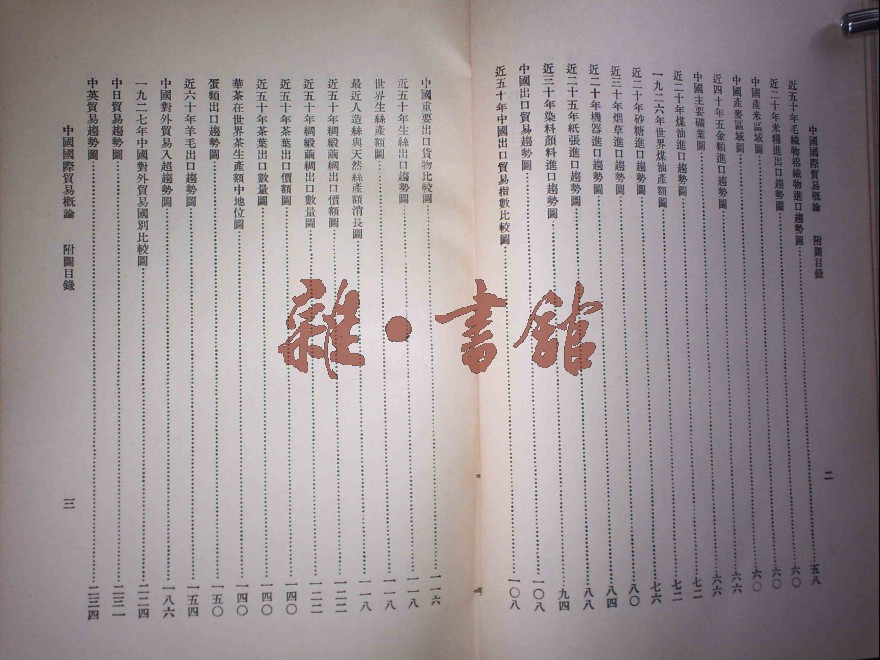 中國國際貿易概論 附圖目錄 二
近五十年毛織物棉織物進口趨勢圖……五八
近二十年米糧進出口趨勢圖……六〇
中國產米區域圖……六〇
中國產麥區域圖……六〇
近四十年五金類進口趨勢圖……六六
中國主要礦業圖……六六
近二十年煤油進口趨勢圖……七二
一九二六年世界煤油產額圖……七二
近二十年砂糖進口趨勢圖……七六
近三十年烟草進口趨勢圖……八〇
近二十年機器進口趨勢圖……八四
近二十五年紙張進口趨勢圖……八八
近三十年染料顏料進口趨勢圖……九四
中國出口貿易趨勢圖……一〇八
近五十年中國出口貿易指數比較圖……一〇八
中國重要出口貨物比較圖……一一六
近五十年生絲出口趨勢圖……一一八
世界生絲產額圖……一一八
最近人造絲與天然絲產額消長圖……一一八
近五十年綢緞繭綢出口價額圖……一二二
近五十年綢緞繭綢出口數量圖……一二二
近五十年茶葉出口價額圖……一四〇
近五十年茶葉出口數量圖……一四〇
華茶在世界茶生產額中地位圖……一四〇
蛋類出口趨勢圖……一五〇
近六十年羊毛出口趨勢圖……一五四
中國對外貿易入超趨勢圖……一八六
一九二七年中國對外貿易國別比較圖……二二四
中日貿易趨勢圖……二三一
中英貿易趨勢圖……二三四
中國國際貿易概論 附圖目錄 三
雜·書館